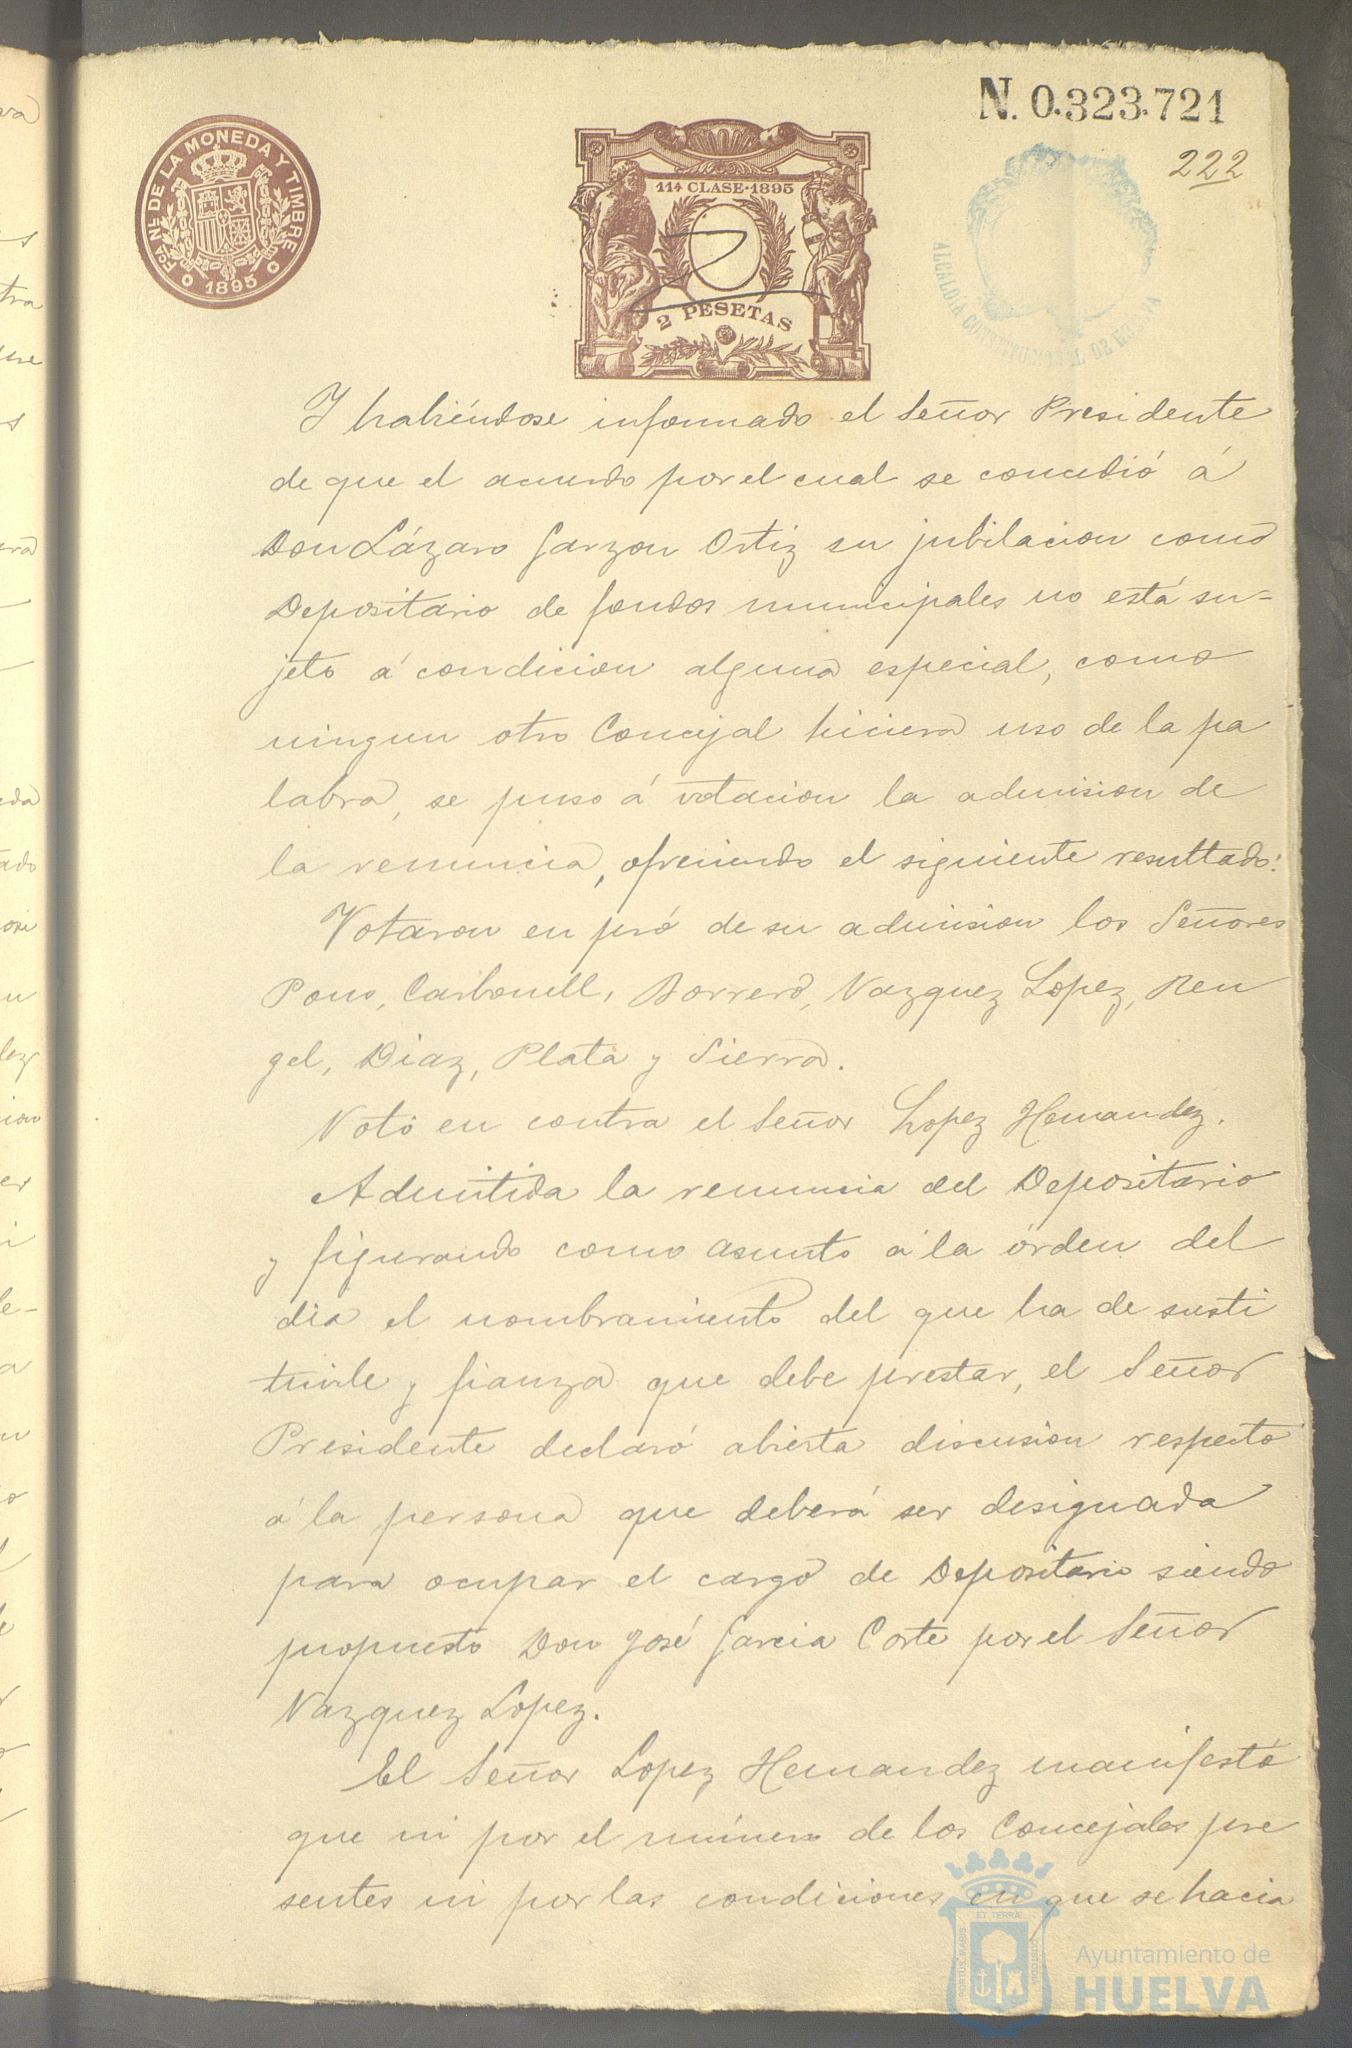 N. 0.323.721
222
FCA NL DE LA MONEDA Y TIMBRE
1895
11ª CLASE·1895
2 PESETAS
ALCALDIA CONSTITUCIONAL DE HUELVA
Y habiéndose informado el Señor Presidente
de que el acuerdo por el cual se concedió á
Don Lázaro Garzon Ortiz su jubilacion como
Depositario de fondos municipales no está su-
jeto á condicion alguna especial, como
ningun otro Concejal hiciera uso de la pa
labra, se puso á votacion la admision de
la renuncia, ofreciendo el siguiente resultado:
Votaron en pró de su admision los Señores
Pons, Carbonell, Borrero, Vazquez Lopez, Ren
gel, Diaz, Plata y Sierra.
Votó en contra el Señor Lopez Hernandez.
Admitida la renuncia del Depositario
y figurando como asunto á la órden del
dia el nombramiento del que ha de susti
tuirle y fianza que debe prestar, el Señor
Presidente declaró abierta discusion respecto
á la persona que deberá ser designada
para ocupar el cargo de Depositario siendo
propuesto Don José Garcia Corte por el Señor
Vazquez Lopez.
El Señor Lopez Hernandez manifestó
que ni por el número de los Concejales pre
sentes ni por las condiciones en que se hacia
PORTUS MARIS ET TERRÆ CUSTODIA
Ayuntamiento de
HUELVA